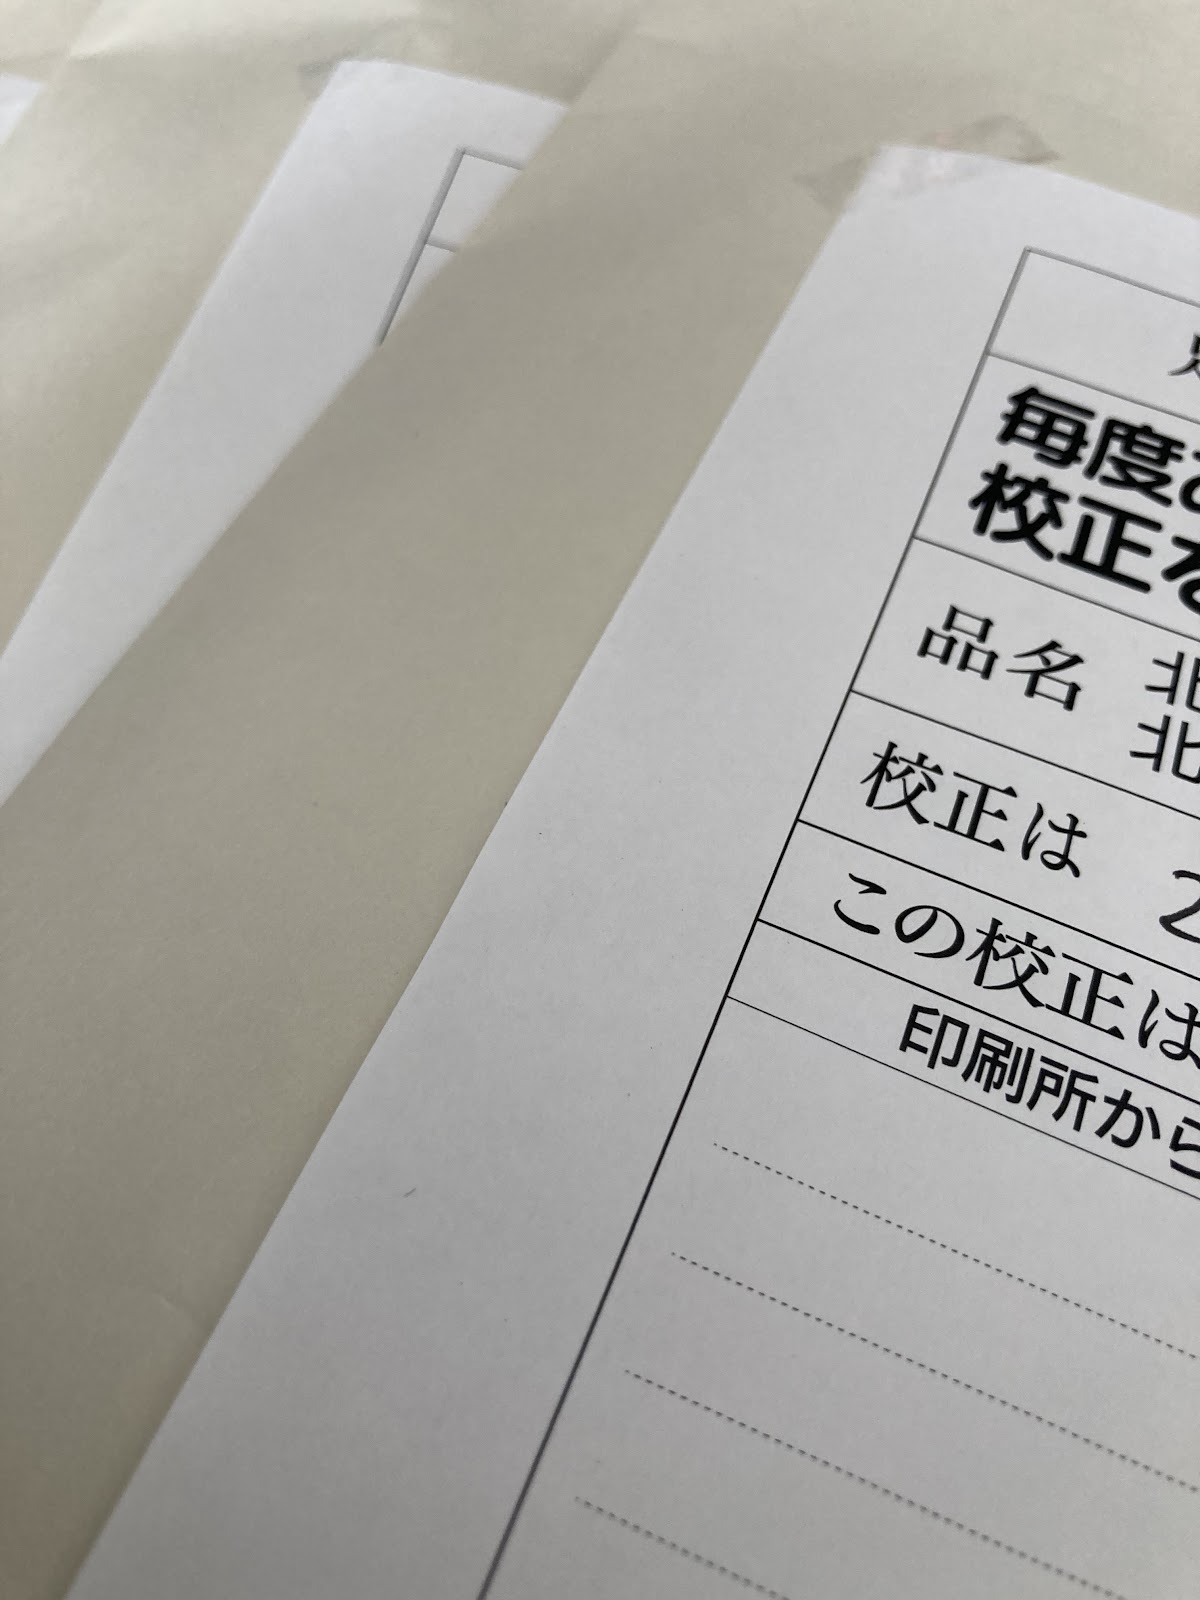 毎度
校正を
品名 北
北
校正は 2
この校正は
印刷所から